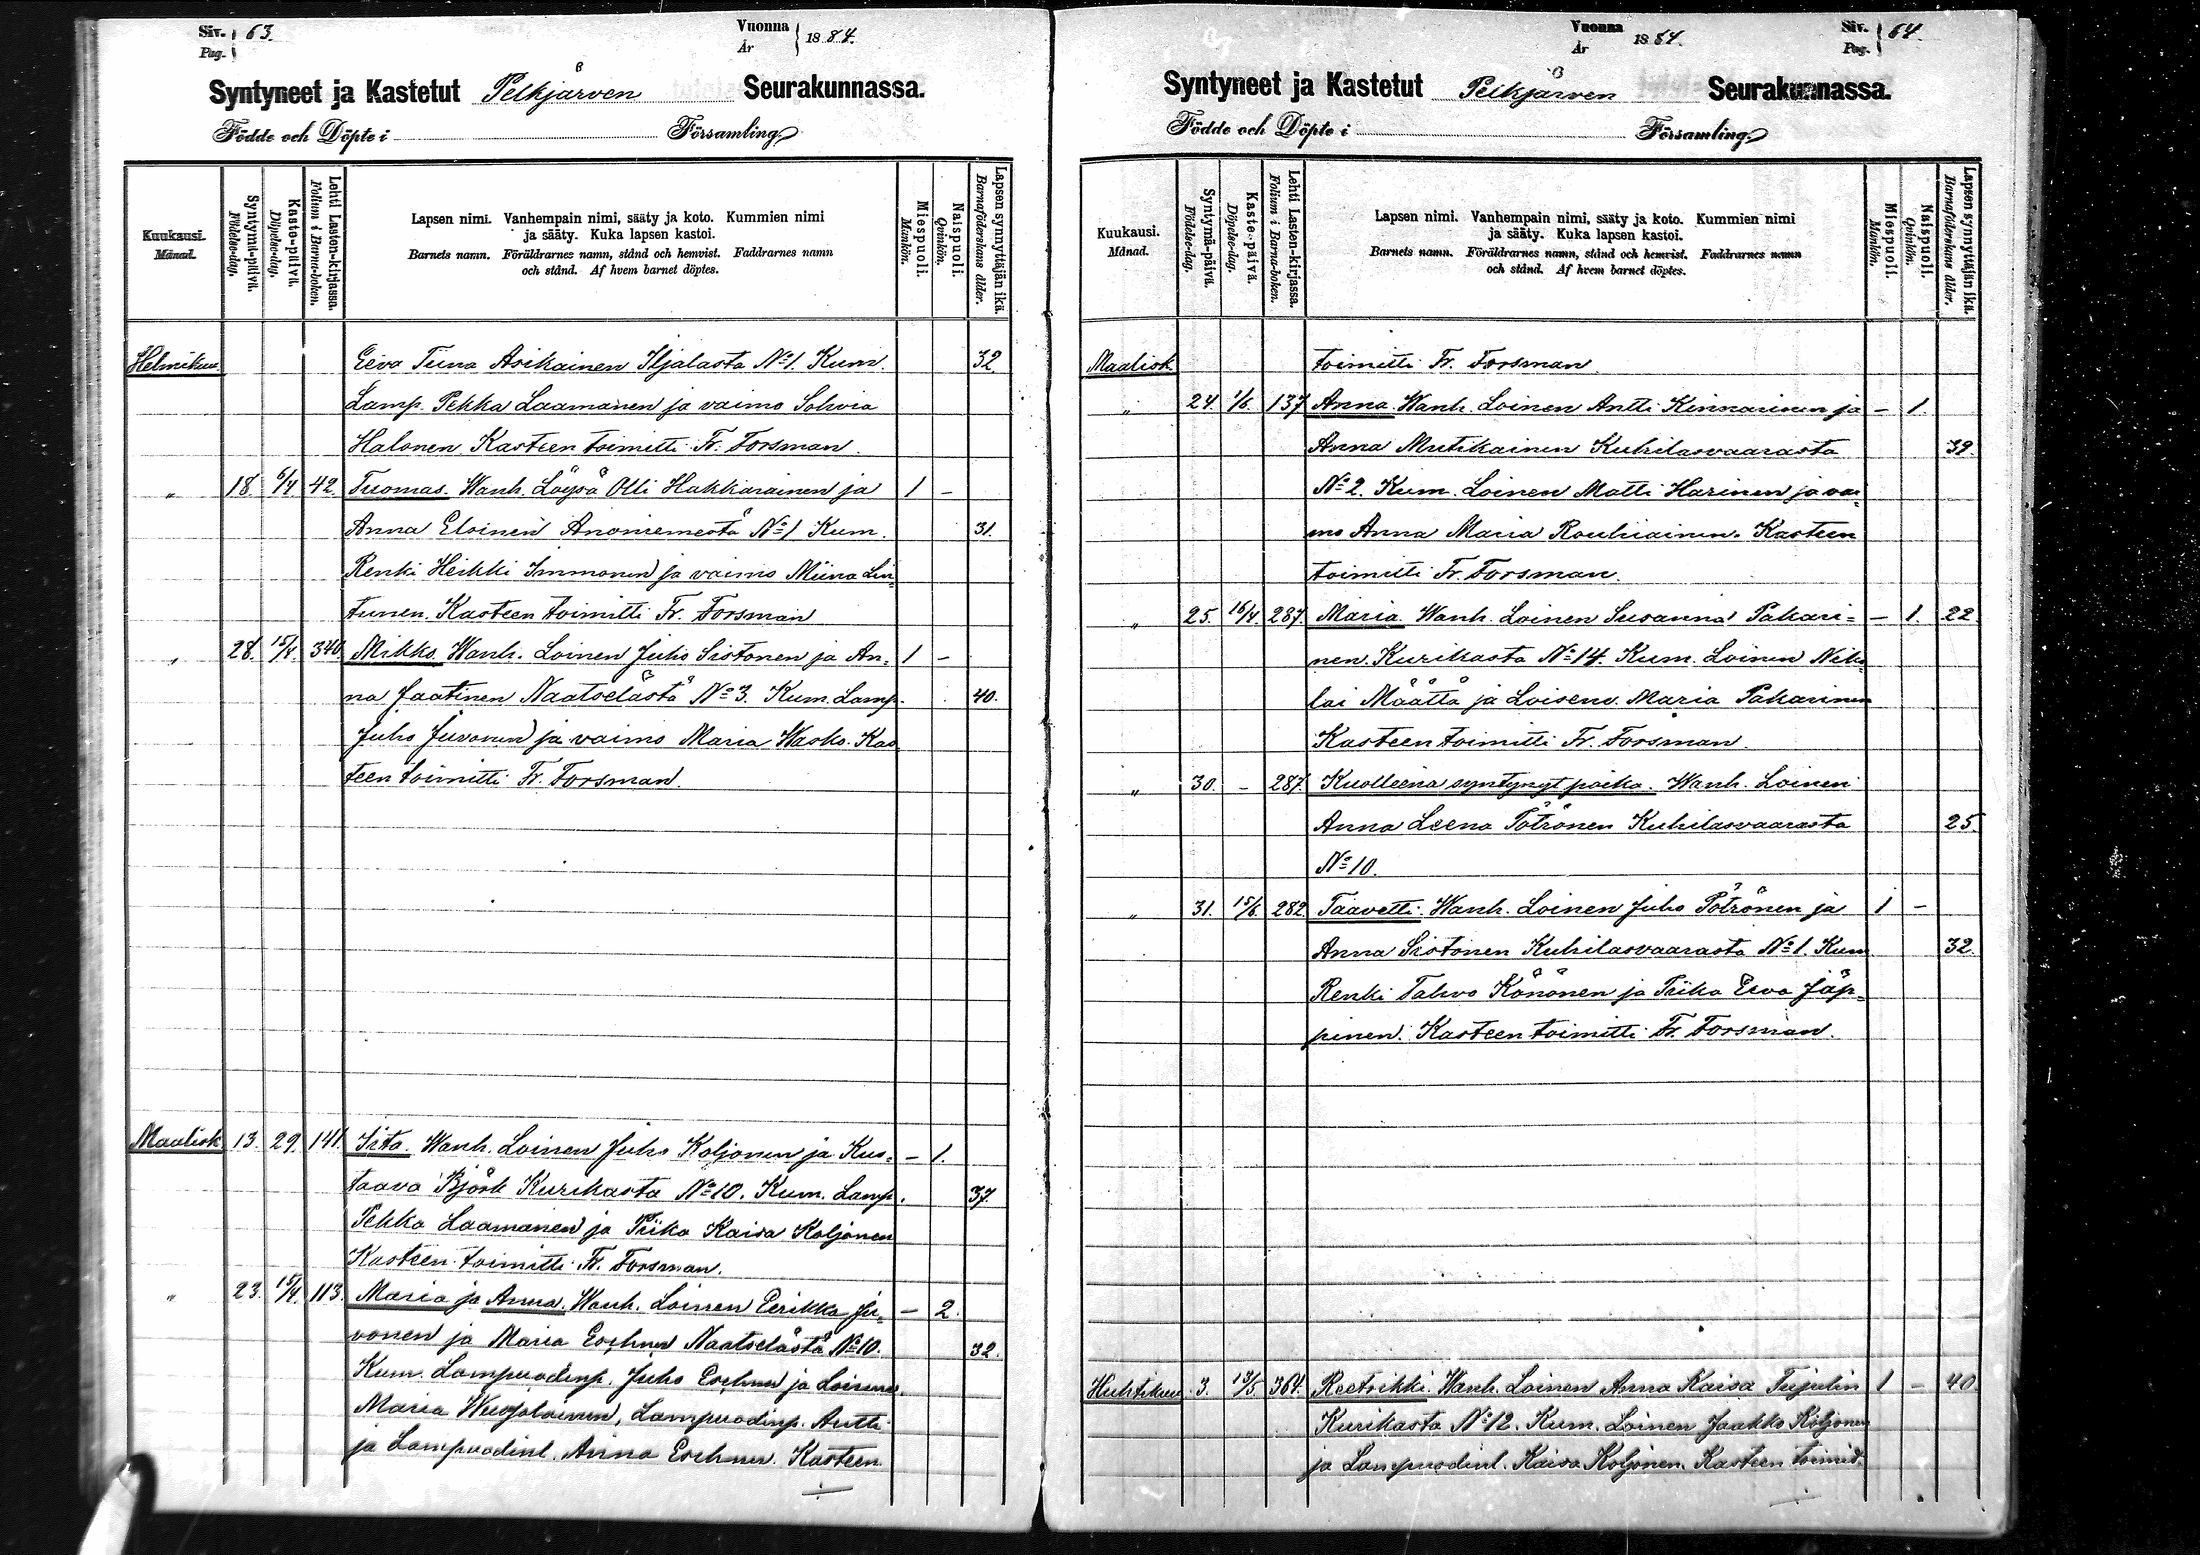 Siv. 63.
Pag.
Vuonna 1884.
År
Syntyneet ja Kastetut Pelkjärven Seurakunnassa.
Födde och Döpte i Församling
Kuukausi.
Månad.
Syntymä-päivä.
Födelse-dag.
Kaste-päivä.
Döpelse-dag.
Lehti Lasten-kirjassa.
Folium i Barna-boken.
Lapsen nimi. Vanhempain nimi, sääty ja koto. Kummien nimi
ja sääty. Kuka lapsen kastoi.
Barnets namn. Föräldrarnes namn, stånd och hemvist. Faddrarnes namn
och stånd. Af hvem barnet döptes.
Miespuoli.
Mankön.
Naispuoli.
Qvinkön.
Lapsen synnyttäjän ikä.
Barnaföderskans ålder.
Helmikuu Eeva Tiina Asikainen Iljalasta No 1. Kum. 32.
Lamp. Pekka Laamanen ja vaimo Sohvia
Halonen Kasteen toimitti Fr. Forsman.
" 18. 6/4 42. Tuomas. Wanh. Löysä Olli Hakkarainen ja 1 -
Anna Eloinen No 1 Kum. 31.
Renki Heikki Immonen ja vaimo Miina Lin-
tunen. Kasteen toimitti Fr. Forsman
" 28. 15/4. 340. Mikko. Wanh. Loinen Juho Sistonen ja An- 1 -
na Jaatinen Naatselästä No 3. Kum. Lamp. 40.
Juho Juvonen ja vaimo Maria Wasko. Kas
teen toimitti Fr. Forsman.
Maalisk 13. 29. 141. Iita. Wanh. Loinen Juho Koljonen ja Kus- - 1.
taava Björk Kurikasta No 10. Kum. Lamp. 37.
Pekka Laamanen ja Piika Kaisa Koljonen
Kasteen toimitti Fr. Forsman.
" 23. 15/4. 113. Maria ja Anna. Wanh. Loinen Eerikka Ju- - 2.
vonen ja Maria Naatselästä No 10. 32.
Kum. Lampuodinp. Juho ja
Maria Lampuodinp. Antti
ja Lampuodint. Anna Kasteen
Siv. 64.
Pag.
Vuonna 1884.
År
Syntyneet ja Kastetut Pelkjärven Seurakunnassa.
Födde och Döpte i Församling
Kuukausi.
Månad.
Syntymä-päivä.
Födelse-dag.
Kaste-päivä.
Döpelse-dag.
Lehti Lasten-kirjassa.
Folium i Barna-boken.
Lapsen nimi. Vanhempain nimi, sääty ja koto. Kummien nimi
ja sääty. Kuka lapsen kastoi.
Barnets namn. Föräldrarnes namn, stånd och hemvist. Faddrarnes namn
och stånd. Af hvem barnet döptes.
Miespuoli.
Mankön.
Naispuoli.
Qvinkön.
Lapsen synnyttäjän ikä.
Barnaföderskans ålder.
Maalisk toimitti Fr. Forsman.
" 24. 1/6. 137 Anna. Wanh. Loinen Antti Kinnarinen ja - 1.
Anna Mutikainen Kuhilasvaarasta 39.
No 2. Kum. Loinen Matti Harinen ja vai-
mo Anna Maria Rouhiainen. Kasteen
toimitti Fr. Forsman.
" 25. 16/4 287. Maria. Wanh. Loinen Susanna Pakari= - 1. 22.
nen. Kurikasta No 14. Kum. Loinen Niko-
lai Määttä ja Loisenv. Maria Pakarinen
Kasteen toimitti Fr. Forsman
" 30. - 287. Kuolleena syntynyt poika. Wanh. Loinen
Anna Leena Pötrönen Kuhilasvaarasta 25.
No 10.
" 31. 15/6. 282 Taavetti. Wanh. Loinen Juho Pötrönen ja 1 -
Anna Sistonen Kuhilasvaarasta No 1. Kum 32.
Renki Tahvo Könönen ja Piika Eeva Jäp-
pinen. Kasteen toimitti Fr. Forsman.
Huhtikuu 3. 13/5 364. Reetrikki. Wanh. Loinen Anna Kaisa 1 - 40.
Kurikasta No 12. Kum. Loinen Jaakko Koljonen
ja Lampuodint. Kaisa Koljonen. Kasteen toimit-